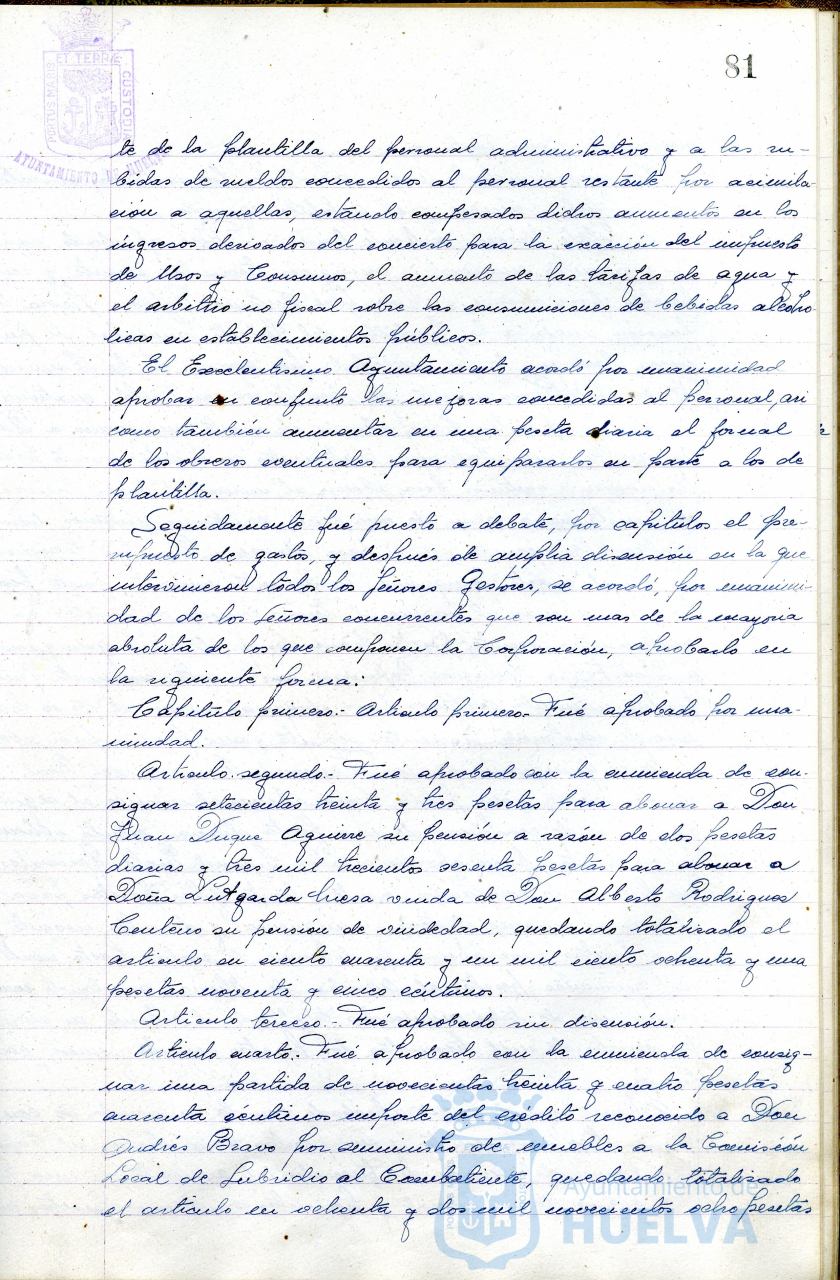 81
PORTUS MARIS ET TERRAE CUSTODIA
AYUNTAMIENTO DE HUELVA
te de la plantilla del personal administrativo y a las su-
bidas de sueldos concedidos al personal restante por acimila-
ción a aquellas, estando compesados dichos aumentos en los
ingresos derivados del concierto para la exacción del impuesto
de Usos y Consumos, el aumento de las tarifas de agua y
el arbitrio no fiscal sobre las consumiciones de bebidas alcoho-
licas en establecimientos públicos.
El Excelentisimo Ayuntamiento acordó por unanimidad
aprobar en conjunto las mejoras concedidas al personal, asi
como también aumentar en una peseta diaria el jornal
de los obreros eventuales para equipararlos en parte a los de
plantilla.
Seguidamente fué puesto a debate, por capitulos el pre-
supuesto de gastos, y después de amplia discusión en la que
intervinieron todos los Señores Gestores, se acordó, por unanimi-
dad de los Señores concurrentes que son mas de la mayoria
absoluta de los que componen la Corporación, aprobarlo en
la siguiente forma:
Capitulo primero.- Articulo primero.- Fué aprobado por una-
nimidad.
Articulo segundo.- Fué aprobado con la enmienda de con-
signar setecientas treinta y tres pesetas para abonar a Don
Juan Duque Aguirre su pensión a razón de dos pesetas
diarias y tres mil trecientos sesenta pesetas para abonar a
Doña Lutgarda viuda de Don Alberto Rodriguez
Centeno su pensión de viudedad, quedando totalizado el
articulo en ciento cuarenta y un mil ciento ochenta y una
pesetas noventa y cinco céntimos.
Articulo tercero.- Fué aprobado sin discusión.
Articulo cuarto.- Fué aprobado con la enmienda de consig-
nar una partida de novecientas treinta y cuatro pesetas
cuarenta centimos importe del crédito reconocido a Don
Andrés Bravo por suministro de muebles a la Comisión
Local de Subsidio al Combatiente, quedando totalizado
el articulo en ochenta y dos mil novecientos ocho pesetas
Ayuntamiento de
HUELVA